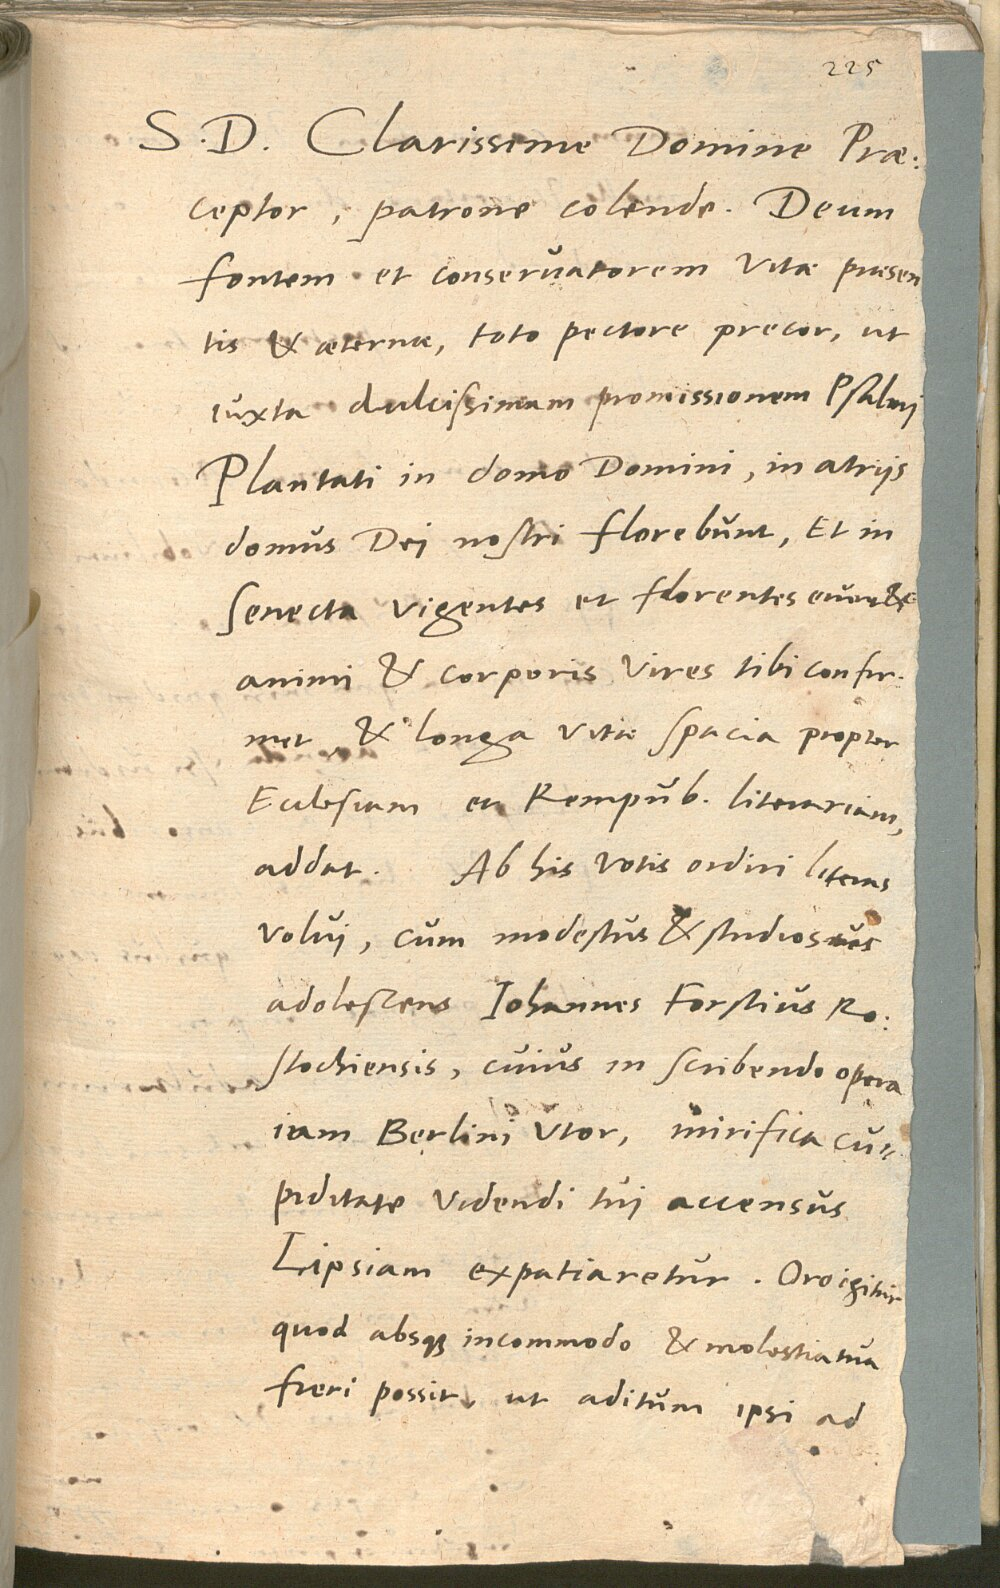 225
S. D. Clarissime Domine Præ:
ceptor, patrone colende. Deum
fontem et conservatorem vitæ præsen
tis & æternæ, toto pectore precor, ut
iuxta dulcissimam promissionem Psalmi
Plantati in domo Domini, in atrijs
domus Dei nostri florebunt, Et in
senecta vigentes et florentes erunt &c
animi & corporis vires tibi confir.
met & longa vitæ spacia propter
Ecclesiam et Rempub. literariam,
addat. Ab his votis ordiri literas
volui, cum modestus & studiosus
adolescens Iohannes Forstius Ro:
stochiensis, cuius in scribendo opera
iam Berlini utor, mirifica cu=
piditate videndi tui accensus
Lipsiam expatiaretur. Oro igitur
quod absq3 incommodo & molestia tua
fieri possit, ut aditum ipsi ad